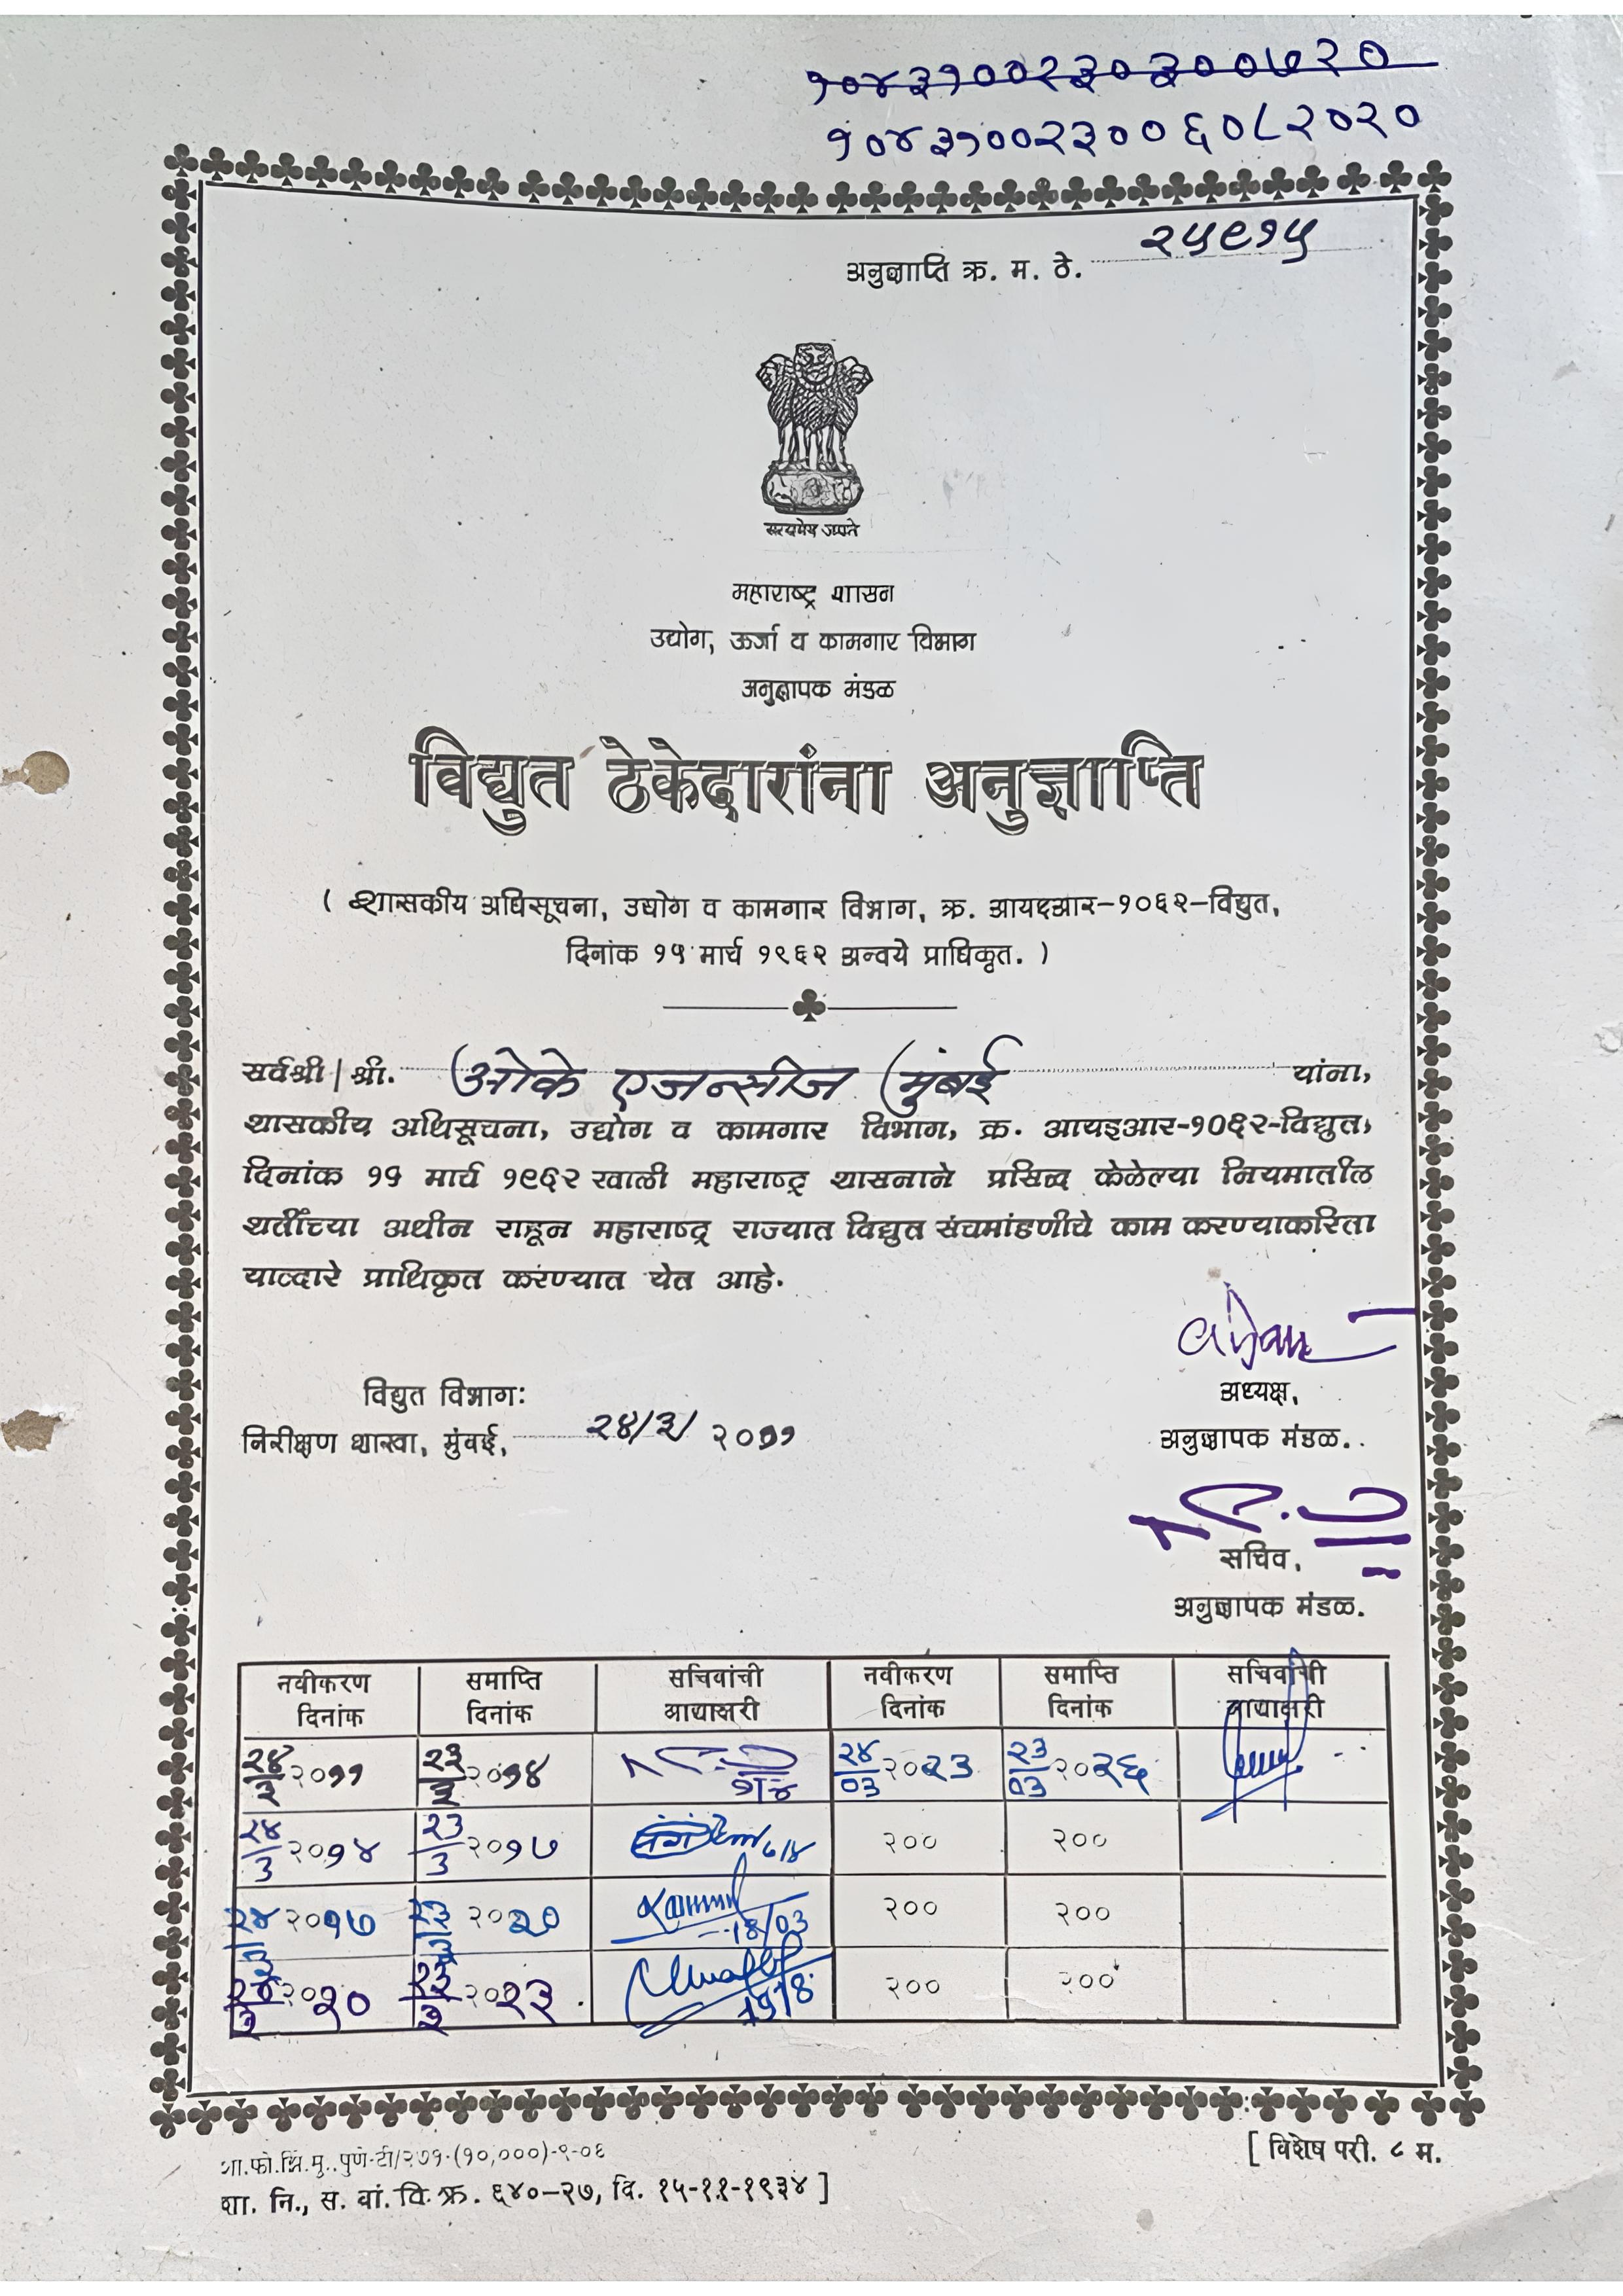 १०४३१००२३०३००७२०
१०४३१००२३००६०८२०२०
अनुज्ञाप्ति क्र. म. ठे. २५९१५
सत्यमेव जयते
महाराष्ट्र शासन
उद्योग, ऊर्जा व कामगार विभाग
अनुज्ञापक मंडळ
विद्युत ठेकेदारांना अनुज्ञाप्ति
( शासकीय अधिसूचना, उद्योग व कामगार विभाग, क्र. आयइआर-१०६२-विद्युत,
दिनांक १५ मार्च १९६२ अन्वये प्राधिकृत. )
सर्वश्री/श्री. ओके एजन्सीज (मुंबई यांना,
शासकीय अधिसूचना, उद्योग व कामगार विभाग, क्र. आयइआर-१०६२-विद्युत,
दिनांक १५ मार्च १९६२ खाली महाराष्ट्र शासनाने प्रसिद्ध केलेल्या नियमातील
शर्तीच्या अधीन राहून महाराष्ट्र राज्यात विद्युत संचमांडणीचे काम करण्याकरिता
याव्दारे प्राधिकृत करण्यात येत आहे.
विद्युत विभाग:
निरीक्षण शाखा, मुंबई, २४/३/ २०११
अध्यक्ष,
अनुज्ञापक मंडळ.
सचिव,
अनुज्ञापक मंडळ.
नवीकरण दिनांक समाप्ति दिनांक सचिवांची आद्याक्षरी नवीकरण दिनांक समाप्ति दिनांक सचिवांची आद्याक्षरी
२४/३ २०११ २३/३ २०१४ २४/03 २०२३ २३/03 २०२६
२४/3 २०१४ २३/3 २०१७ २०० २००
२४/३ २०१७ २३/३ २०२० 18/03 २०० २००
२४/३ २०२० २३/३ २०२३ २०० २००
शा.फो.झिं.मु.,पुणे-टी/२७१-(१०,०००)-९-०६
शा. नि., स. वां. वि. क्र. ६४०-२७, दि. १५-११-१९३४ ]
[ विशेष परी. ८ म.